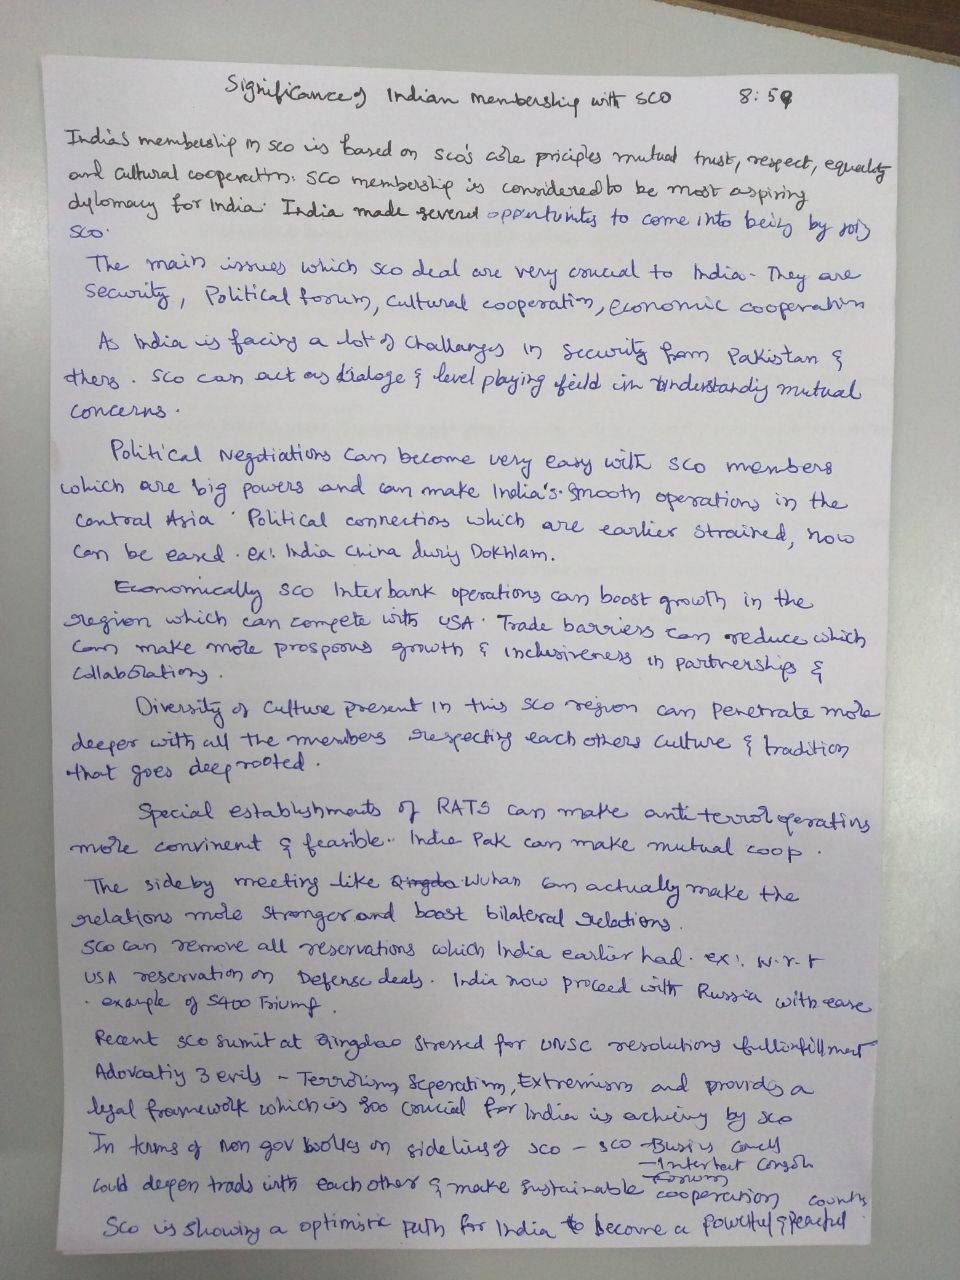 Significance of Indian membership with SCO 8:59
India's membership in SCO is based on SCO's core priciples mutual trust, respect, equality
and cultural cooperation. SCO membership is considered to be most aspiring
dylomacy for India. India made several oppurtunites to come into being by
SCO.
The main issues which SCO deal are very crucial to India. They are
Security, Political forum, cultural cooperation, economic cooperation
As India is facing a lot of challanges in security from Pakistan &
thers. SCO can act as dialoge & level playing feild in understanding mutual
concerns.
Political Negotiations can become very easy with SCO members
which are big powers and can make India's smooth operations in the
Central Asia. Political connections which are earlier strained, now
can be eased. ex: India China during Dokhlam.
Economically SCO Interbank operations can boost growth in the
region which can compete with USA. Trade barriers can reduce which
can make more prosporous growth & inclusiveness in partnerships &
collaborations.
Diversity of culture present in this SCO region can penetrate more
deeper with all the members respecting each others culture & tradition
that goes deep rooted.
Special establishments of RATS can make anti terror operations
more convinent & feasible. India Pak can make mutual coop.
The side by meeting like Qingdao Wuhan can actually make the
relations more stronger and boost bilateral relations.
SCO can remove all reservations which India earlier had. ex: w.r.t
USA reservation on Defense deals. India now proceed with Russia with ease
example of S400 Triumf.
Recent SCO sumit at Qingdao stressed for UNSC resolutions
3 evils - Terrorism, Seperatism, Extremism and provides a
legal framework which is soo crucial for India is by SCO
In terms of non gov bodies on sidelines of SCO - SCO Busins
Forum
Could deepen trade with each other & make sustainable cooperation
SCO is showing a optimistic path for India to become a powerful & peaceful